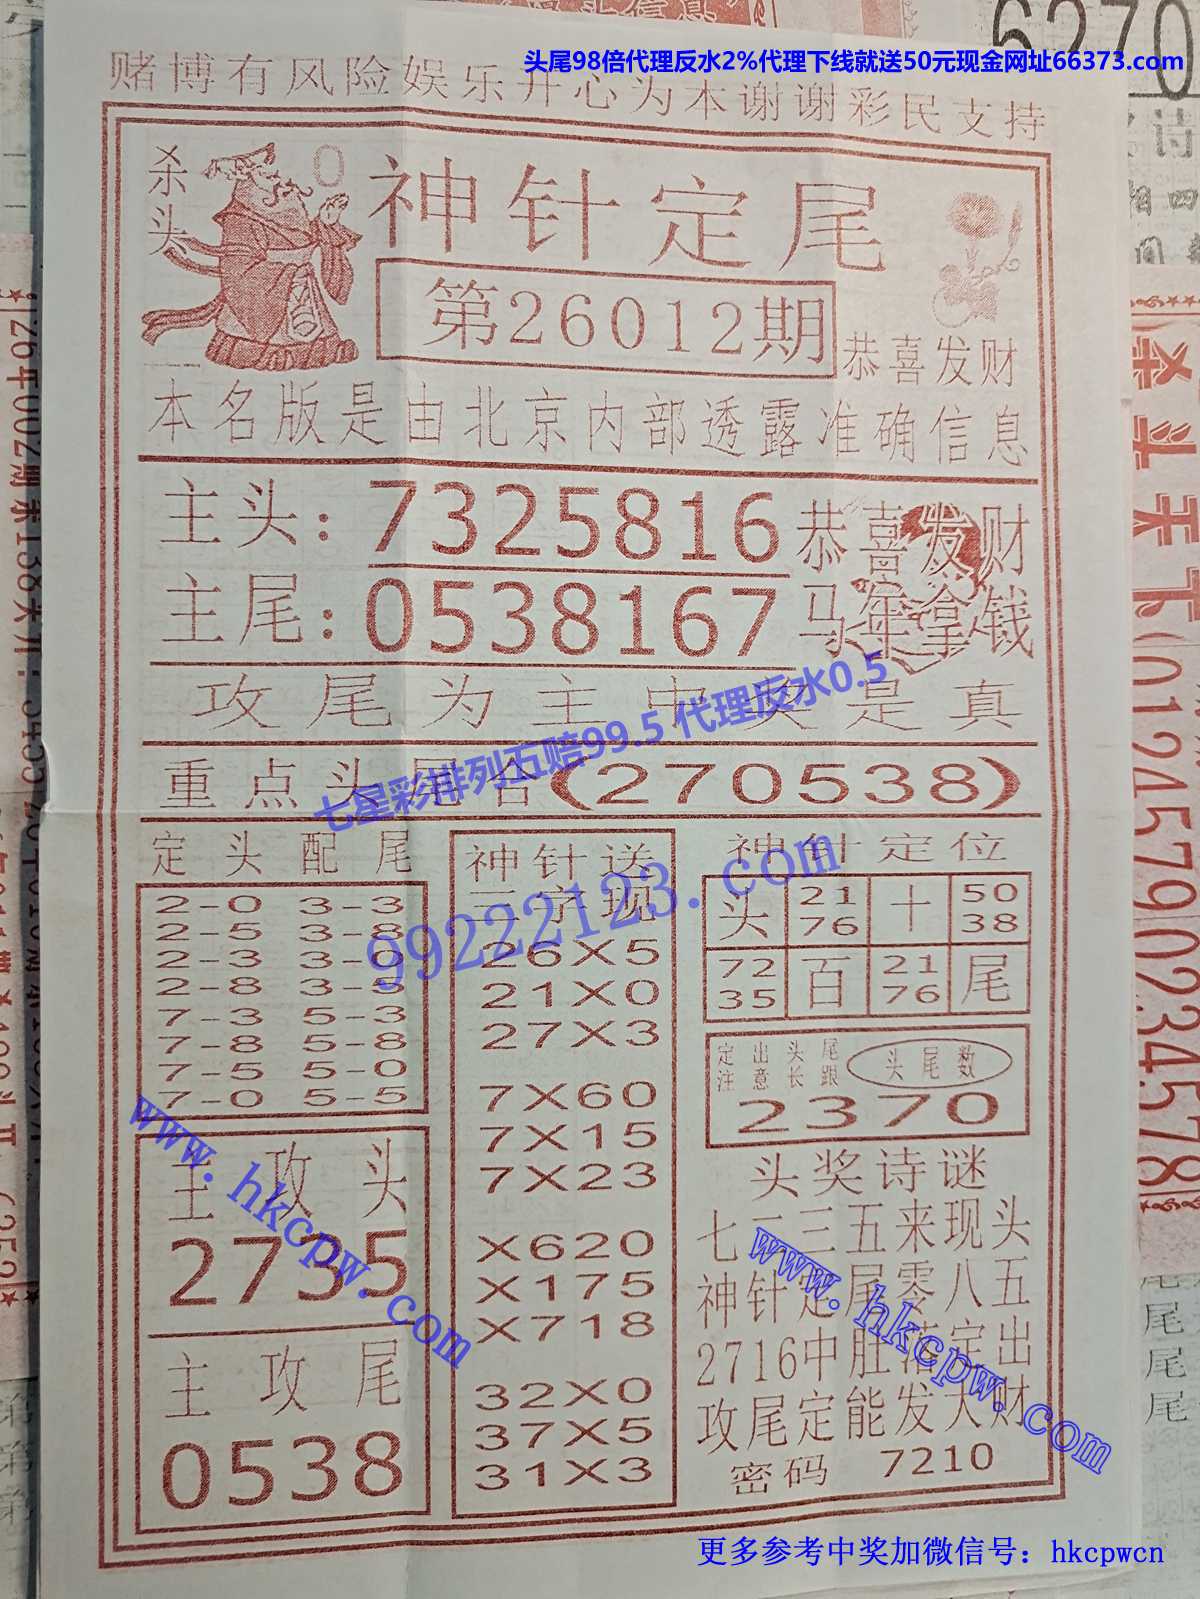 头尾98倍代理反水2%代理下线就送50元现金网址66373.com
赌博有风险娱乐开心为本谢谢彩民支持
杀头
0
神针定尾
第26012期
恭喜发财
本名版是由北京内部透露准确信息
主头：7325816
恭喜发财
主尾：0538167
马年拿钱
攻尾为主中奖是真
七星彩排列五赔99.5 代理反水0.5
重点头尾合(270538)
99222123.com
定头配尾
2-0 3-3
2-5 3-8
2-3 3-0
2-8 3-5
7-3 5-3
7-8 5-8
7-5 5-0
7-0 5-5
主攻头
2735
主攻尾
0538
神针送
三字现
26X5
21X0
27X3
7X60
7X15
7X23
X620
X175
X718
32X0
37X5
31X3
神针定位
头 21 十 50
76 38
72 百 21 尾
35 76
定出头尾
注意长跟
头尾数
2370
头奖诗谜
七二三五来现头
神针定尾零八五
2716中肚落定出
攻尾定能发大财
密码 7210
www.hkcpw.com
www.hkcpw.com
更多参考中奖加微信号：hkcpwcn
6270
杀头天下(01245790234578
尾
尾
尾